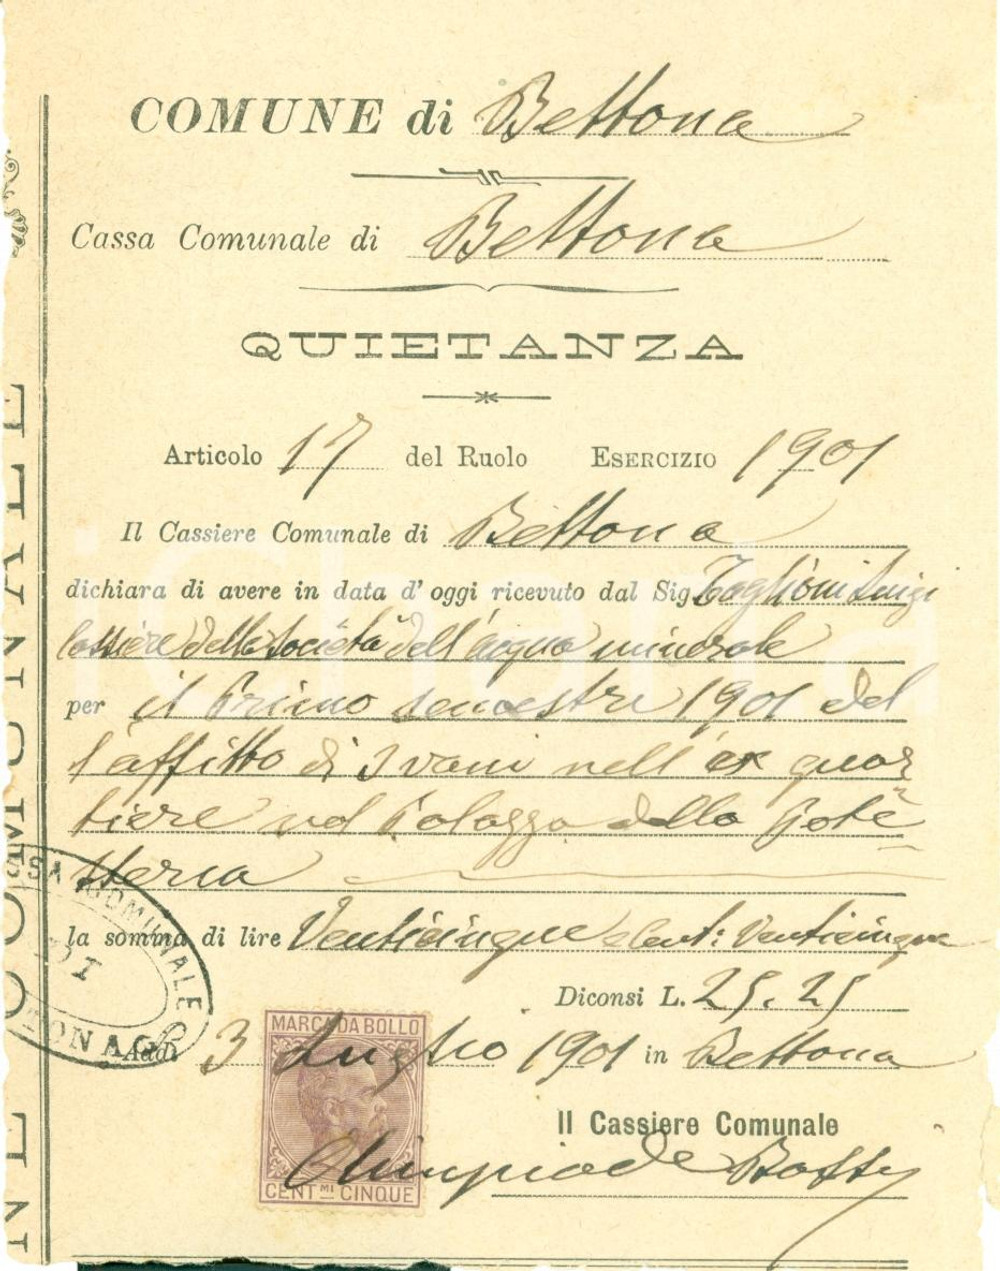 COMUNE di Bettona
Cassa Comunale di Bettona
QUIETANZA
Articolo 17 del Ruolo Esercizio 1901
Il Cassiere Comunale di Bettona
dichiara di avere in data d'oggi ricevuto dal Sig. Taglioni Luigi
Cassiere della Società dell'acqua minerale
per il Primo semestre 1901 del
l'affitto di 3 vani nell'ex quar
tiere nel Palazzo della Pote
la somma di lire Venticinque e Cent: Venticinque
Diconsi L. 25.25
Addì 3 Luglio 1901 in Bettona
MARCA DA BOLLO
Il Cassiere Comunale
Olimpiade
CENT.MI CINQUE
CASSA COMUNALE
DI